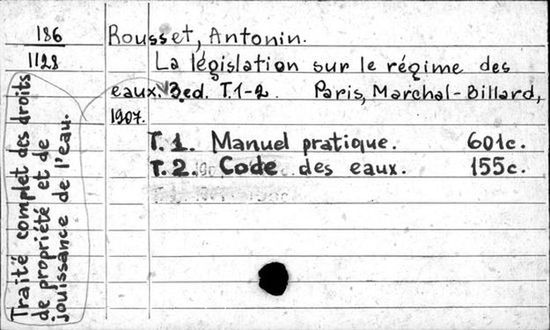 186
1128
Rousset, Antonin.
La législation sur le régime des
eaux. 3ed. T.1-2. Paris, Marchal-Billard,
1907.
T. 1. Manuel pratique. 601c.
T. 2. Code des eaux. 155c.
Traité complet des droits
de propriété et de
jouissance de l'eau.